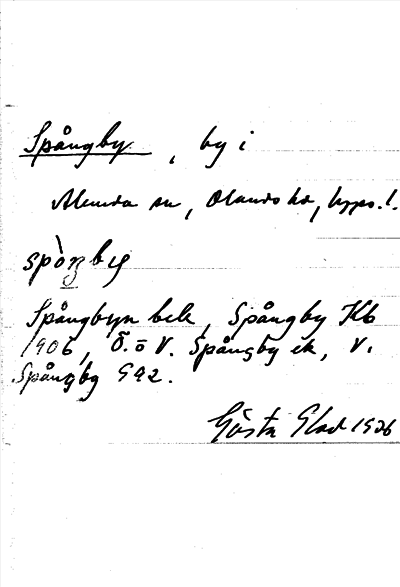 Spångby, by i
Alunda sn, Olands hd, Upps. l.
spòŋby
Spångbyn bek, Spångby Kb
1906, Ö. o V. Spångby ek, V.
Spångby GAZ.
Gösta Elad 1926